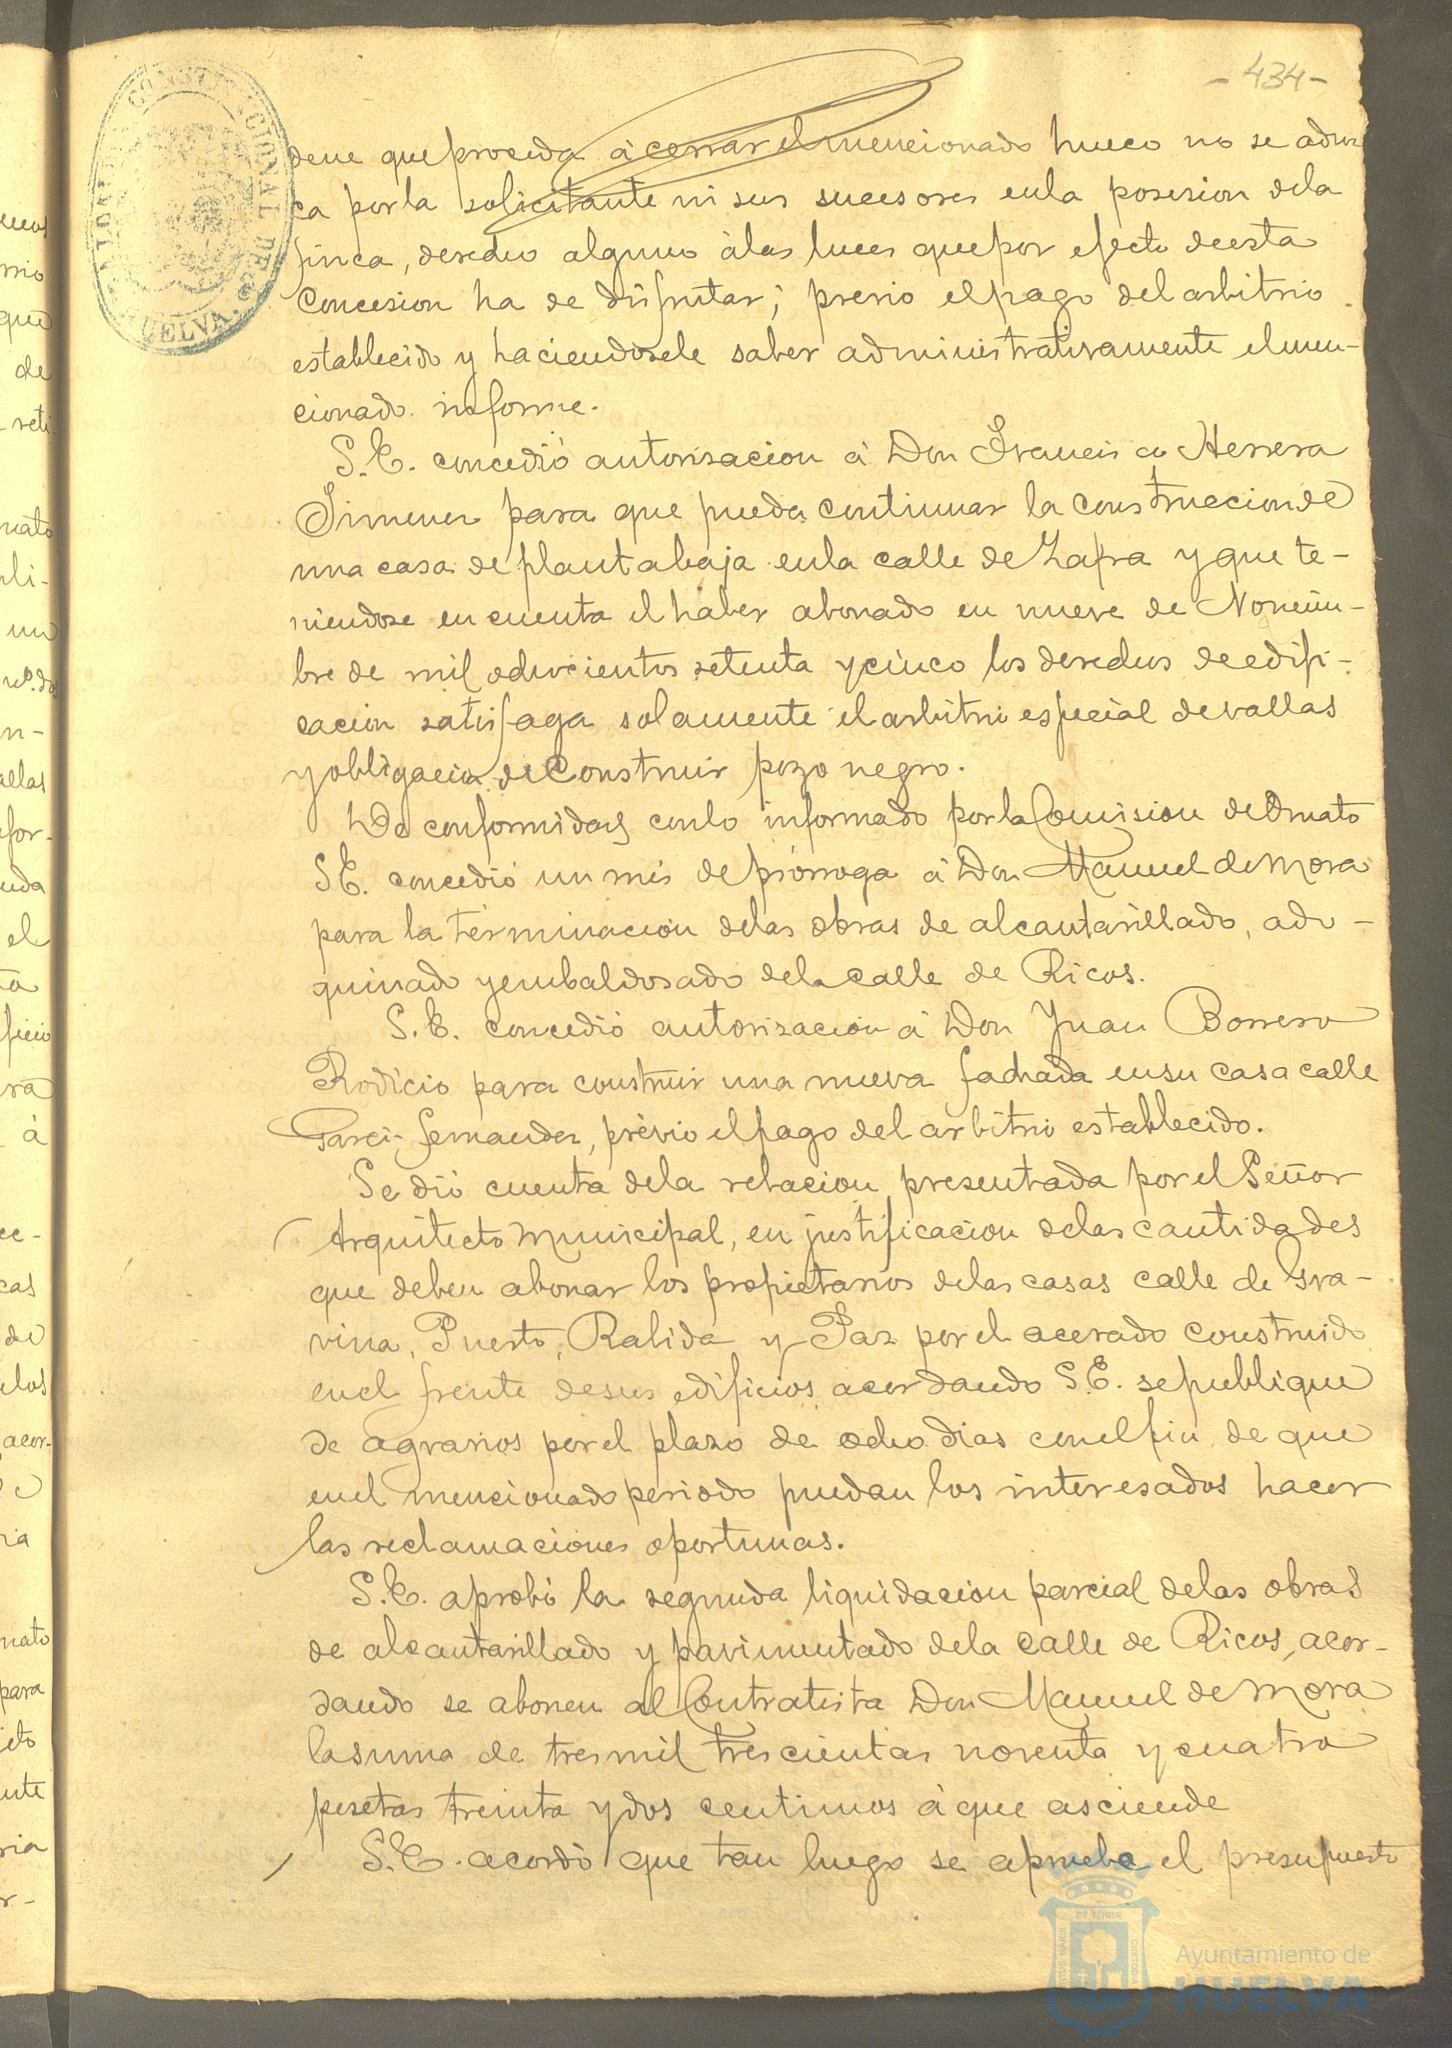 -434-
dene que proceda á cerrar el mencionado hueco no se aduz
ca por la solicitante ni sus sucesores en la posesion de la
finca, derecho alguno á las luces que por efecto de esta
Concesion ha de disfrutar; previo el pago del arbitrio
establecido y haciendosele saber administrativamente el men-
cionado informe.
S.E. concedió autorizacion á Don Francisco Herrera
Jimenez para que pueda continuar la construccion de
una casa de planta baja en la calle de Zafra y que te-
niendose en cuenta el haber abonado en nueve de Noviem-
bre de mil ochocientos setenta y cinco los derechos de edifi-
cacion satisfaga solamente el arbitrio especial de vallas
y obligacion de Construir pozo negro.
De conformidad con lo informado por la Comision de Ornato
S.E. concedió un mes de prórroga á Don Manuel de Mora
para la terminacion de las obras de alcantarillado, ado-
quinado y embaldosado de la calle de Ricos.
S.E. concedió autorizacion á Don Juan Borrero
Rodicio para construir una nueva fachada en su casa calle
Garci-Fernandez, prévio el pago del arbitrio establecido.
Se dió cuenta de la relacion presentada por el Señor
Arquitecto Municipal, en justificacion de las cantidades
que deben abonar los propietarios de las casas calle de Gra-
vina, Puerto, Rabida y Paz por el acerado construido
en el frente de sus edificios acordando S.E. se publique
de agravios por el plazo de ocho dias con el fin de que
en el mencionado periodo puedan los interesados hacer
las reclamaciones oportunas.
S.E. aprobó la segunda liquidacion parcial de las obras
de alcantarillado y pavimentado de la calle de Ricos, acor-
dando se abonen al Contratista Don Manuel de Mora
la suma de tres mil trescientas noventa y cuatro
pesetas treinta y dos centimos á que asciende
S.E. acordó que tan luego se apruebe el presupuesto
Ayuntamiento de
HUELVA